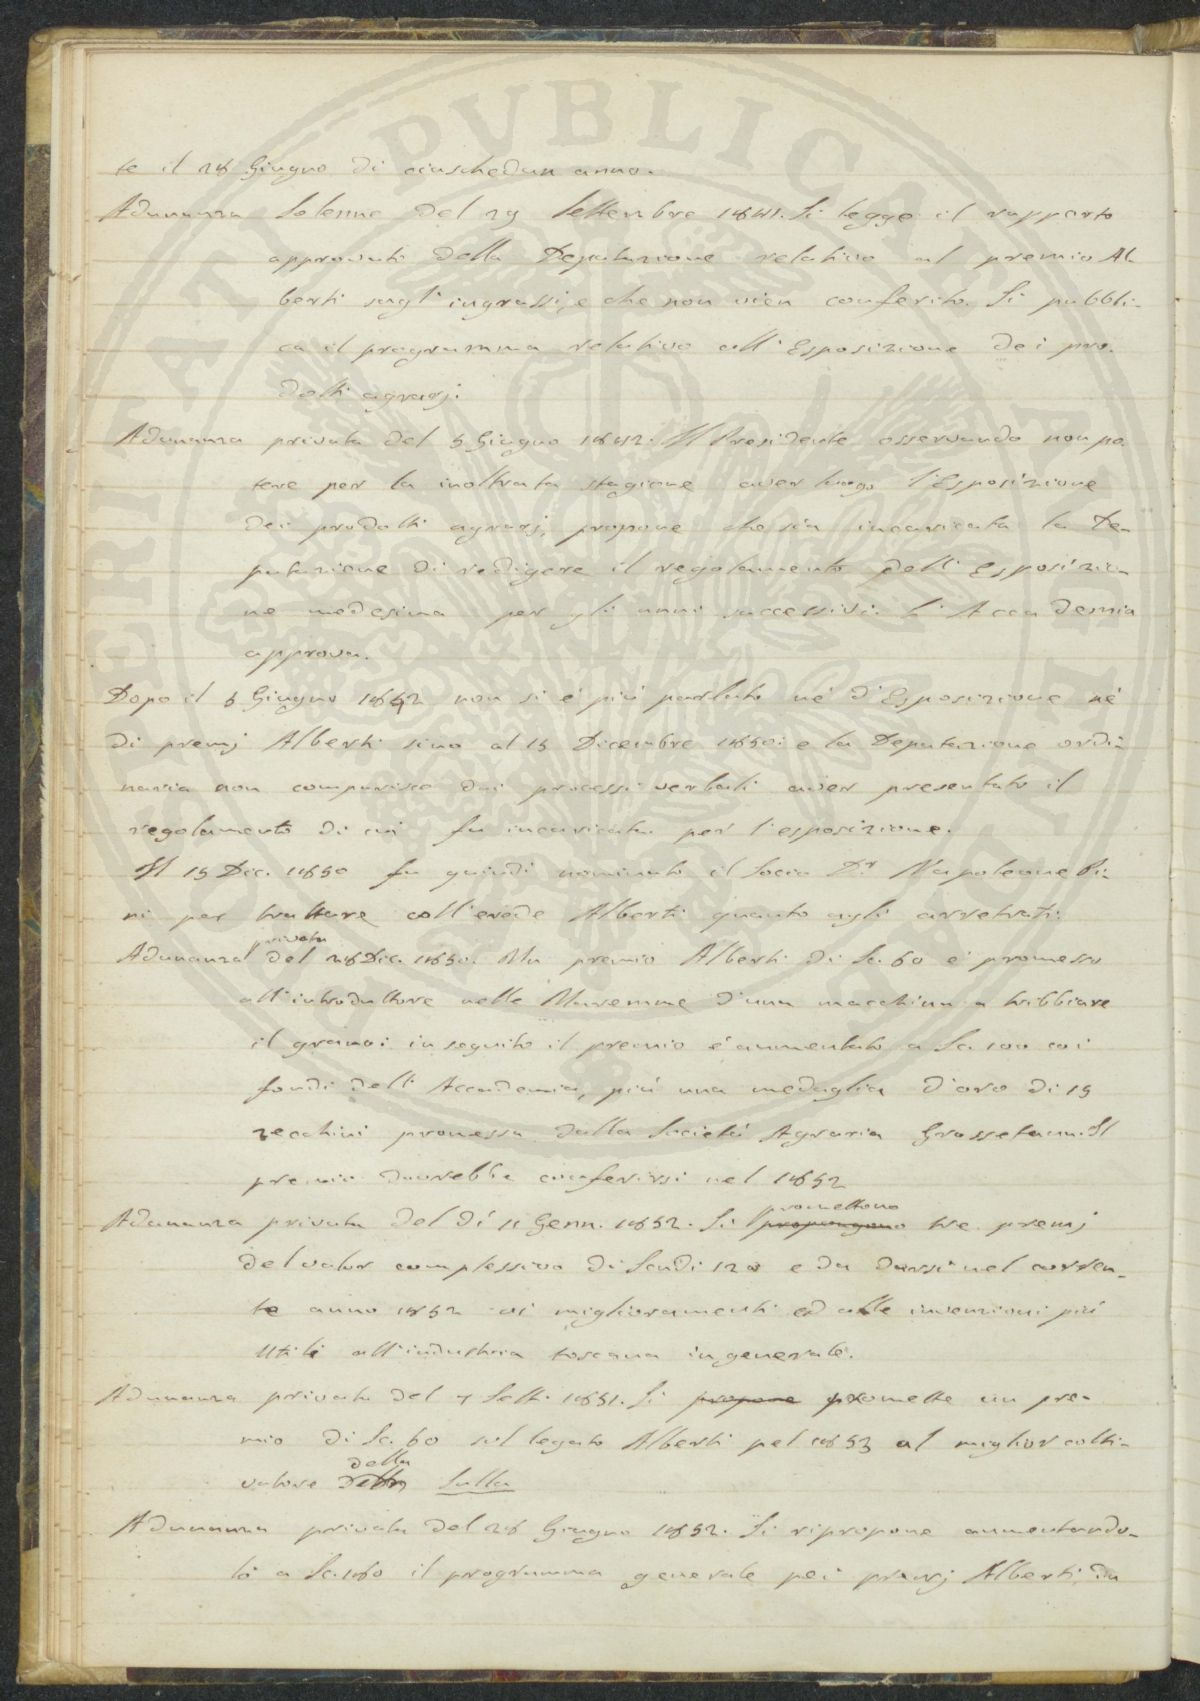 te il 28 Giugno di ciaschedun anno.
Adunanza Solenne del 29 Settembre 1841. Si legge il rapporto
approvato della Deputazione relativo al premio Al-
berti sugl'ingrassi, e che non vien conferito. Si pubbli-
ca il programma relativo all'Esposizione dei pro-
dotti agrarj.
Adunanza privata del 5 Giugno 1842. Il Presidente osservando non po-
tere per la inoltrata stagione aver luogo l'Esposizione
dei prodotti agrarj, propone che sia incaricata la De-
putazione di redigere il regolamento dell'Esposizio-
ne medesima per gli anni successivi. L'Accademia
approva.
Dopo il 5 Giugno 1842 non si è più parlato nè d'Esposizione nè
di premj Alberti sino al 15 Dicembre 1850: e la Deputazione ordi-
naria non comparisce dai processi verbali aver presentato il
regolamento di cui fu incaricata per l'esposizione.
Il 15 Dic. 1850 fu quindi nominato il Socio Dr. Napoleone Pi-
ni per trattare coll'erede Alberti quanto agli arretrati.
Adunanza privata del 28 Dic. 1850. Un premio Alberti di Sc. 60 è promesso
all'introduttore nelle Maremme d'una macchina a tribbiare
il grano: in seguito il premio è aumentato a Sc. 100 coi
fondi dell'Accademia, più una medaglia d'oro di 15
zecchini promessa dalla Società Agraria Grossetana. Il
premio dovrebbe conferirsi nel 1852
Adunanza privata del dì 11 Genn. 1852. Si propongono promettono tre premj
del valor complessivo di Scudi 120 e da darsi nel corren-
te anno 1852 ai miglioramenti ed alle invenzioni più
utili all'industria toscana in generale.
Adunanza privata del 7 Sett. 1851. Si propone promette un pre-
mio di Sc. 60 sul legato Alberti pel 1853 al miglior colti-
vatore della Sulla
Adunanza privata del 28 Giugno 1852. Si ripropone aumentando-
lo a Sc. 180 il programma generale pei premj Alberti da
PVBLIC